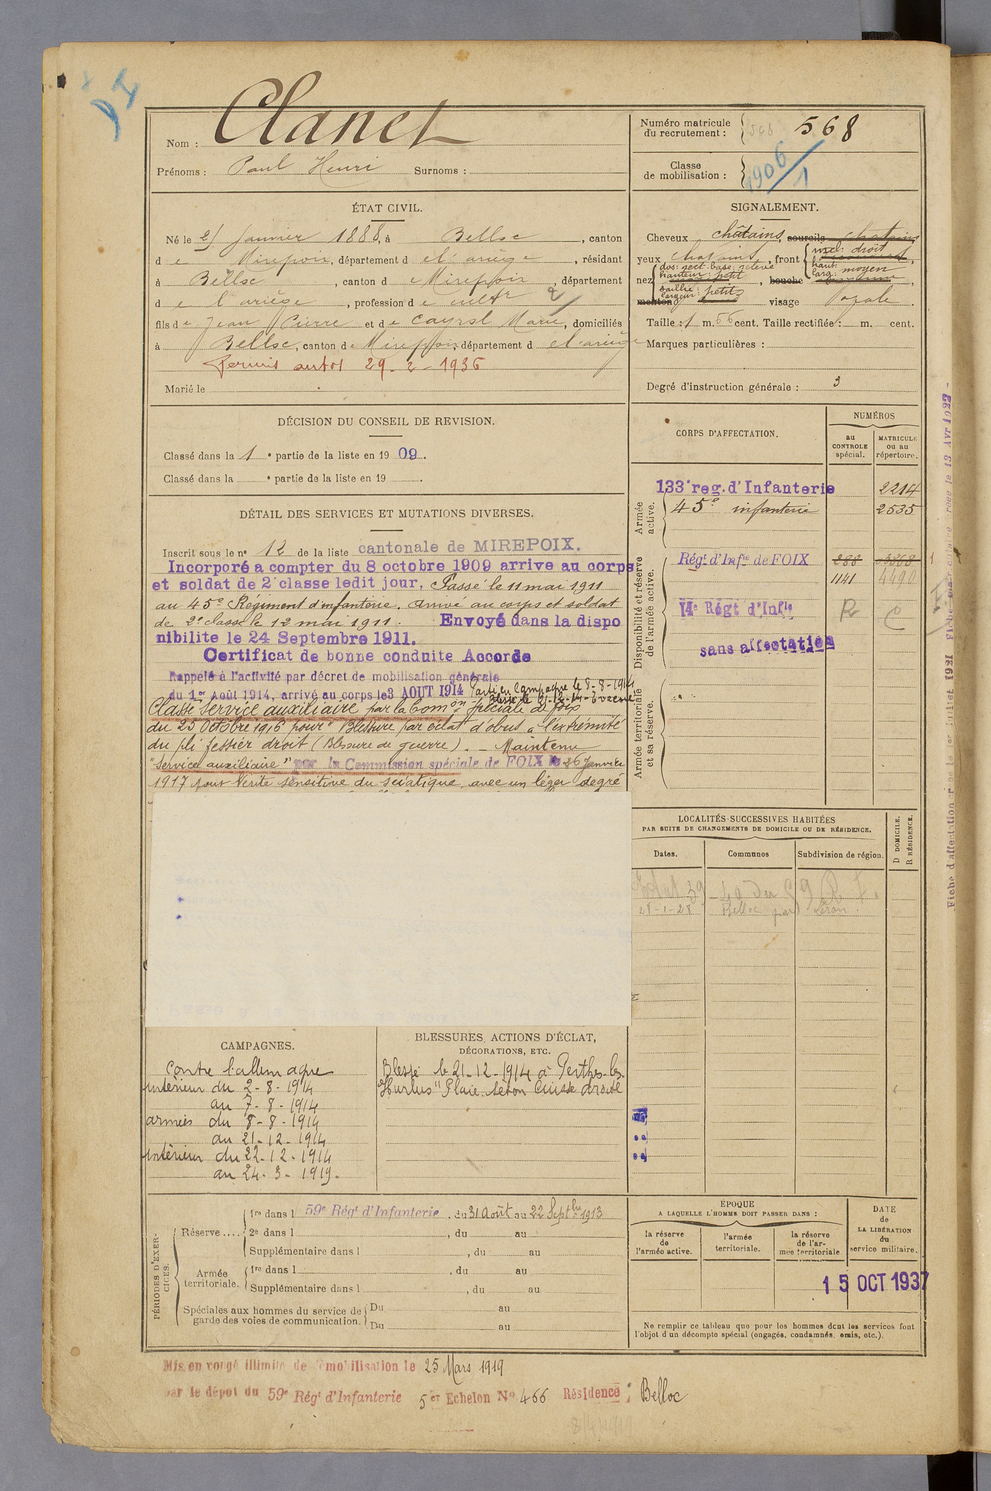 Nom : Clanet
Prénoms : Paul Henri Surnoms :
Numéro matricule du recrutement : 568
Classe de mobilisation : 1906/1
ÉTAT CIVIL.
Né le 21 Janvier 1888, à Belloc, canton
de Mirepoix, département de l'ariège, résidant
à Belloc, canton de Mirepoix, département
de l'ariège, profession de cultr
fils de Jean Pierre et de Cayrol Marie, domiciliés
à Belloc, canton de Mirepoix, département de l'ariège
Permis autos 29-2-1936
Marié le
SIGNALEMENT.
Cheveux châtains, sourcils chatains
yeux chatains, front incl: droit
haut:
larg: moyen
nez dos: rect. base: relevé
hauteur: petit
saillie: petits
largeur:
bouche
menton visage Ovale.
Taille : 1 m. 56 cent. Taille rectifiée : m. cent.
Marques particulières :
Degré d'instruction générale : 3
DÉCISION DU CONSEIL DE REVISION.
Classé dans la 1 e partie de la liste en 1909.
Classé dans la e partie de la liste en 19
DÉTAIL DES SERVICES ET MUTATIONS DIVERSES.
Inscrit sous le no 12 de la liste cantonale de MIREPOIX.
Incorporé a compter du 8 octobre 1909 arrive au corps
et soldat de 2e classe ledit jour. Passé le 11 mai 1911
au 45e Régiment d'infanterie. Arrivé au corps et soldat
de 2e classe le 12 mai 1911. Envoyé dans la dispo
nibilite le 24 Septembre 1911.
Certificat de bonne conduite Accorde
Rappelé à l'activité par décret de mobilisation générale
du 1er Août 1914, arrivé au corps le 3 AOUT 1914 Parti en Campagne le 8-8-1914
Blessé le 21-12-14 - Evacué
Classé service auxiliaire par la Comon Spéciale de Foix
du 25 Octobre 1916 pour "Blessure par éclat d'obus à l'extrémité
du pli fessier droit (Blessure de guerre). - Maintenu
"service auxiliaire" par la Commission spéciale de FOIX le 26 Janvier
1917 pour Névrite sensitive du sciatique, avec un léger degré
CORPS D'AFFECTATION.
NUMÉROS
au CONTROLE spécial.
MATRICULE ou au répertoire.
Armée active.
133e reg. d'Infanterie 2214
45e infanterie 2535
Disponibilité et réserve de l'armée active.
Régt d'Infie de FOIX 288 3868
1141 4494
14e Régt d'Infie R C
sans affectation
Armée territoriale et sa réserve.
LOCALITÉS SUCCESSIVES HABITÉES
PAR SUITE DE CHANGEMENTS DE DOMICILE OU DE RÉSIDENCE.
Dates. Communes Subdivision de région. D DOMICILE. R RÉSIDENCE.
21-1-28 Belloc par Léran.
CAMPAGNES.
Contre l'allemagne
intérieur du 2-8-1914
au 7-8-1914
armées du 8-8-1914
au 21-12-1914
intérieur du 22-12-1914
au 24-3-1919.
BLESSURES, ACTIONS D'ÉCLAT,
DÉCORATIONS, ETC.
Blessé le 21-12-1914 à Perthes-les-
Hurlus "Plaie séton cuisse droite
PÉRIODES D'EXERCICES.
Réserve .... 1re dans l 59e Régt d'Infanterie, du 31 Août au 22 Septbre 1913
2e dans l , du au
Supplémentaire dans l , du au
Armée territoriale. 1re dans l , du au
Supplémentaire dans l , du au
Spéciales aux hommes du service de garde des voies de communication. Du au
Du au
ÉPOQUE
A LAQUELLE L'HOMME DOIT PASSER DANS :
la réserve de l'armée active.
l'armée territoriale.
la réserve de l'armée territoriale
DATE de LA LIBÉRATION du service militaire.
15 OCT 1937
Ne remplir ce tableau que pour les hommes dont les services font
l'objet d'un décompte spécial (engagés, condamnés, omis, etc.).
Mis en congé illimité de démobilisation le 25 Mars 1919
par le dépot du 59e Régt d'Infanterie 5er Echelon No 466 Résidence : Belloc